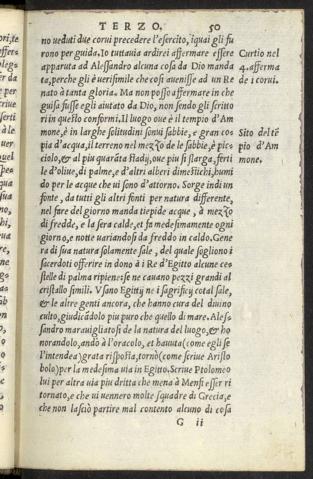 TERZO. 50
no ueduti due corui precedere l'esercito, iquai gli fu
rono per guida. Io tuttauia ardirei affermare essere
apparuta ad Alessandro alcuna cosa da Dio manda
ta, perche gli è uerisimile che così auenisse ad un Re
nato à tanta gloria. Ma non posso affermare in che
guisa fusse egli aiutato da Dio, non sendo gli scritto
ri in questo conformi. Il luogo oue è il tempio d'Am
mone, è in larghe solitudini sonui sabbie, e gran co
pia d'acqua, il terreno nel mezzo de le sabbie, è pic
ciolo, & al piu quarāta stadij, oue piu si slarga, ferti
le d'oliue, di palme, e d'altri alberi dimestichi, humi
do per le acque che ui sono d'attorno. Sorge indi un
fonte, da tutti gli altri fonti per natura differente,
nel fare del giorno manda tiepide acque, à mezzo
dì fredde, e la sera calde, et fa medesimamente ogni
giorno, e notte uariandosi da freddo in caldo. Gene
ra di sua natura solamente sale, del quale sogliono i
sacerdoti offrire in dono à i Re d'Egitto alcune ce
stelle di palma ripiene: se ne cauano pezzi grandi al
cristallo simili. Vsano Egittij ne i sagrificij cotal sale,
& le altre genti ancora, che hanno cura del diuino
culto, giudicādolo piu puro che quello di mare. Ales
sandro marauigliatosi de la natura del luogo, & ho
norandolo, andò à l'oracolo, et hauuta (come egli se
l'intendea) grata risposta, tornò (come scriue Aristo
bolo) per la medesima uia in Egitto. Scriue Ptolomeo
lui per altra uia piu dritta che menà à Menfi esser ri
tornato, e che ui uennero molte squadre di Grecia, e
che non lasciò partire mal contento alcuno di cosa
G ii
Curtio nel
4. afferma
de i corui.
Sito del tē
pio d'Am
mone.